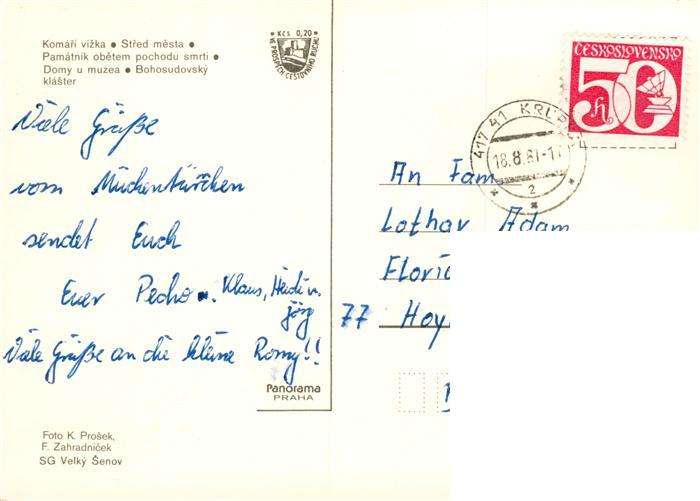 Komáří vížka • Střed města •
Památník obětem pochodu smrti •
Domy u muzea • Bohosudovský
klášter
• Kčs 0,20 •
VE PROSPĚCH CESTOVNÍHO RUCHU
Viele Grüße
vom Mückentürmchen
sendet Euch
Euer Pecho. Klaus, Heidi u.
Jörg
Viele Grüße an die kleine Romy!!
Panorama
PRAHA
Foto K. Prošek,
F. Zahradníček
SG Velký Šenov
ČESKOSLOVENSKO
50 h
417 41 KRUPKA
18.8.81-17
2
An Fam.
Lothar Adam
77 Hoy